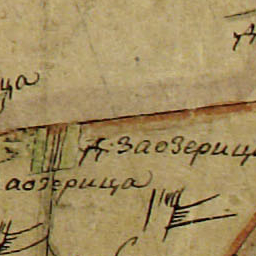 ца
Д. Заозерица
аозерица